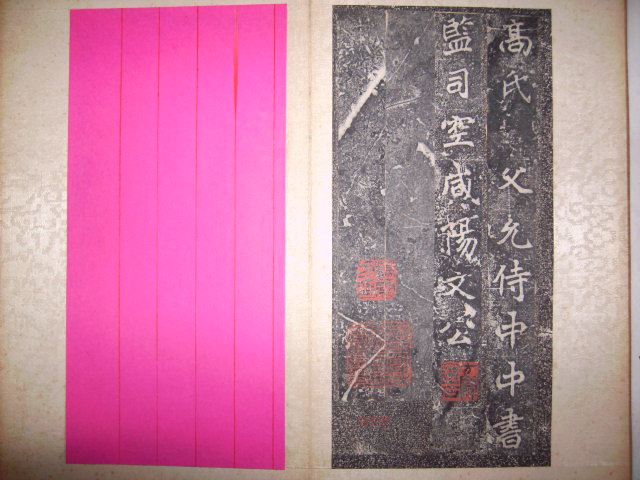 高氏父允侍中中書
監司空咸陽文公